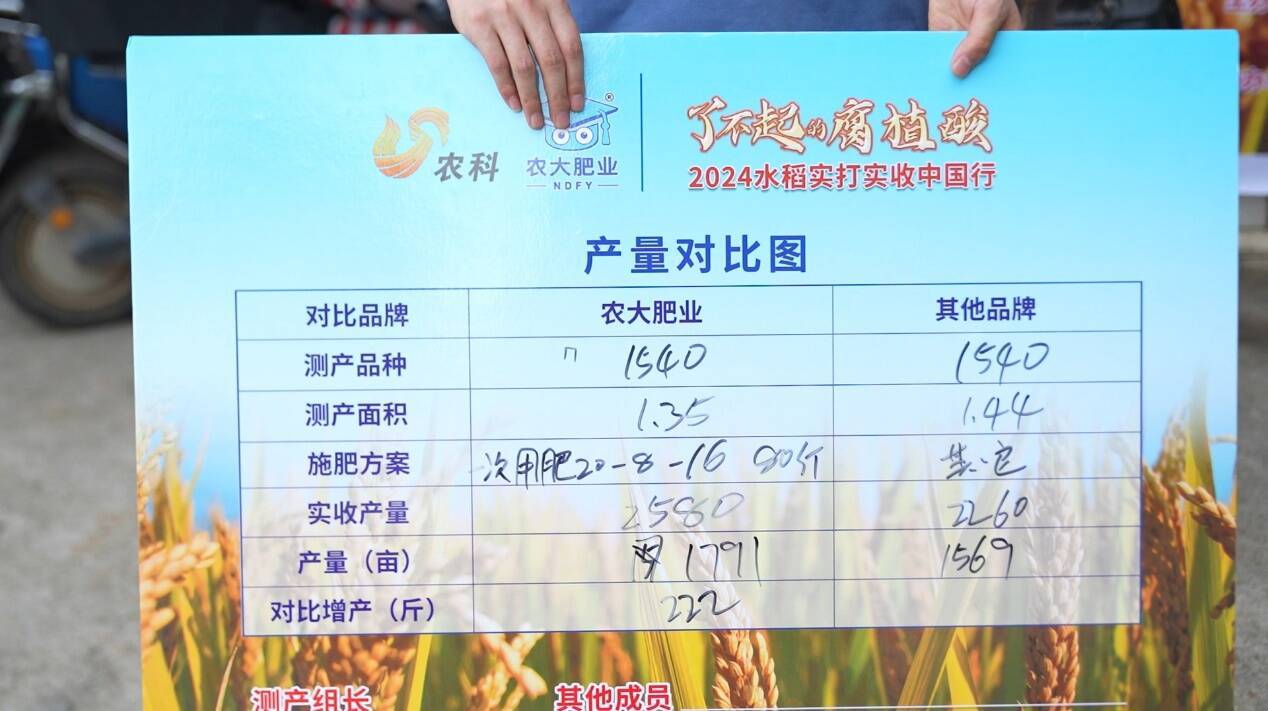 农科 农大肥业 了不起的腐植酸
NDFY 2024水稻实打实收中国行
产量对比图
对比品牌 农大肥业 其他品牌
测产品种 1540 1540
测产面积 1.35 1.44
施肥方案 一次用肥20-8-16 80斤 其它
实收产量 2580 2260
产量（亩） 1791 1569
对比增产（斤） 222
测产组长 其他成员